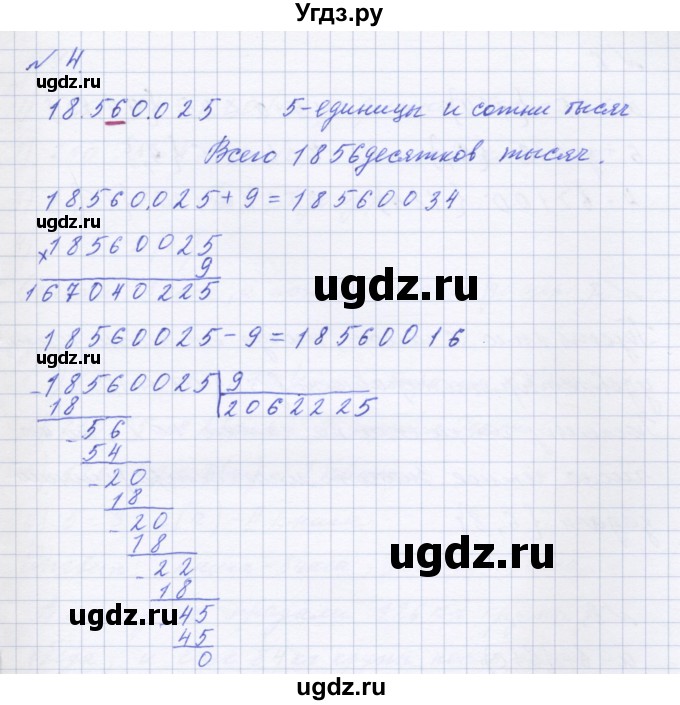 Угдз.ру
№ 4.
ugdz.ru
18.560.025 5-единицы и сотни тысяч
Всего 1856десятков тысяч.
18.560.025 + 9 = 18560.034
ugdz.ru
×18560025
9
ugdz.ru
167040225
18560025 - 9 = 18560016
-18560025 9
18 2062225
-56
54
-20
18
-20
ugdz.ru
18
-22
ugdz.ru
18
-45
45
0
ugdz.ru